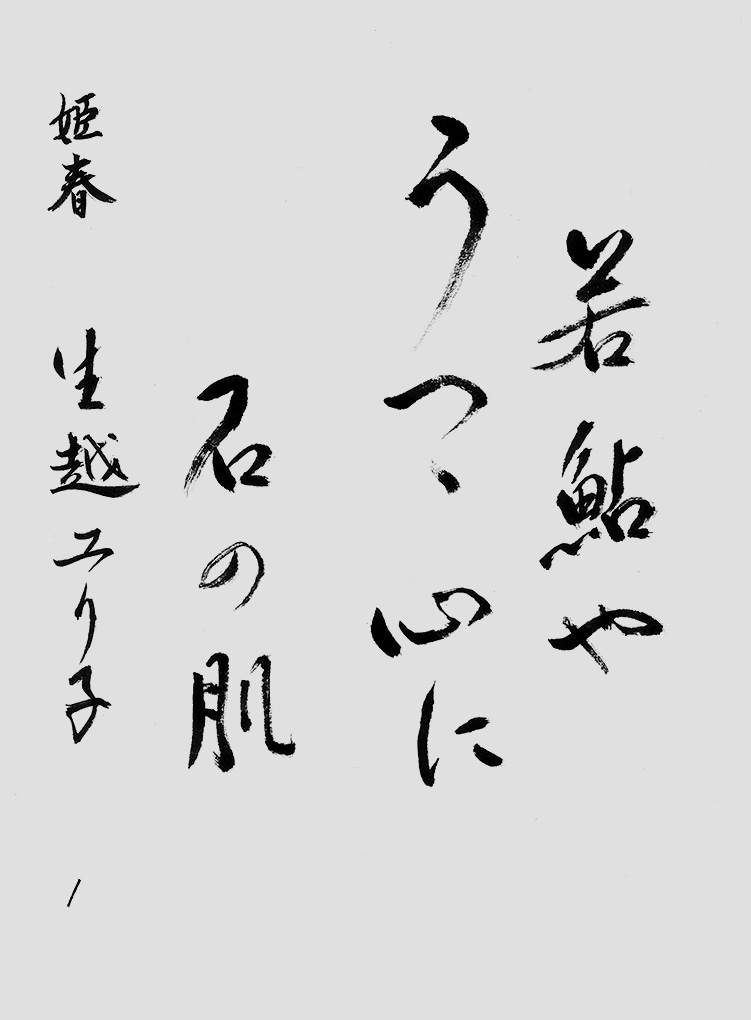 若鮎や
うつゝ心に
石の肌
姫春 生越ユリ子